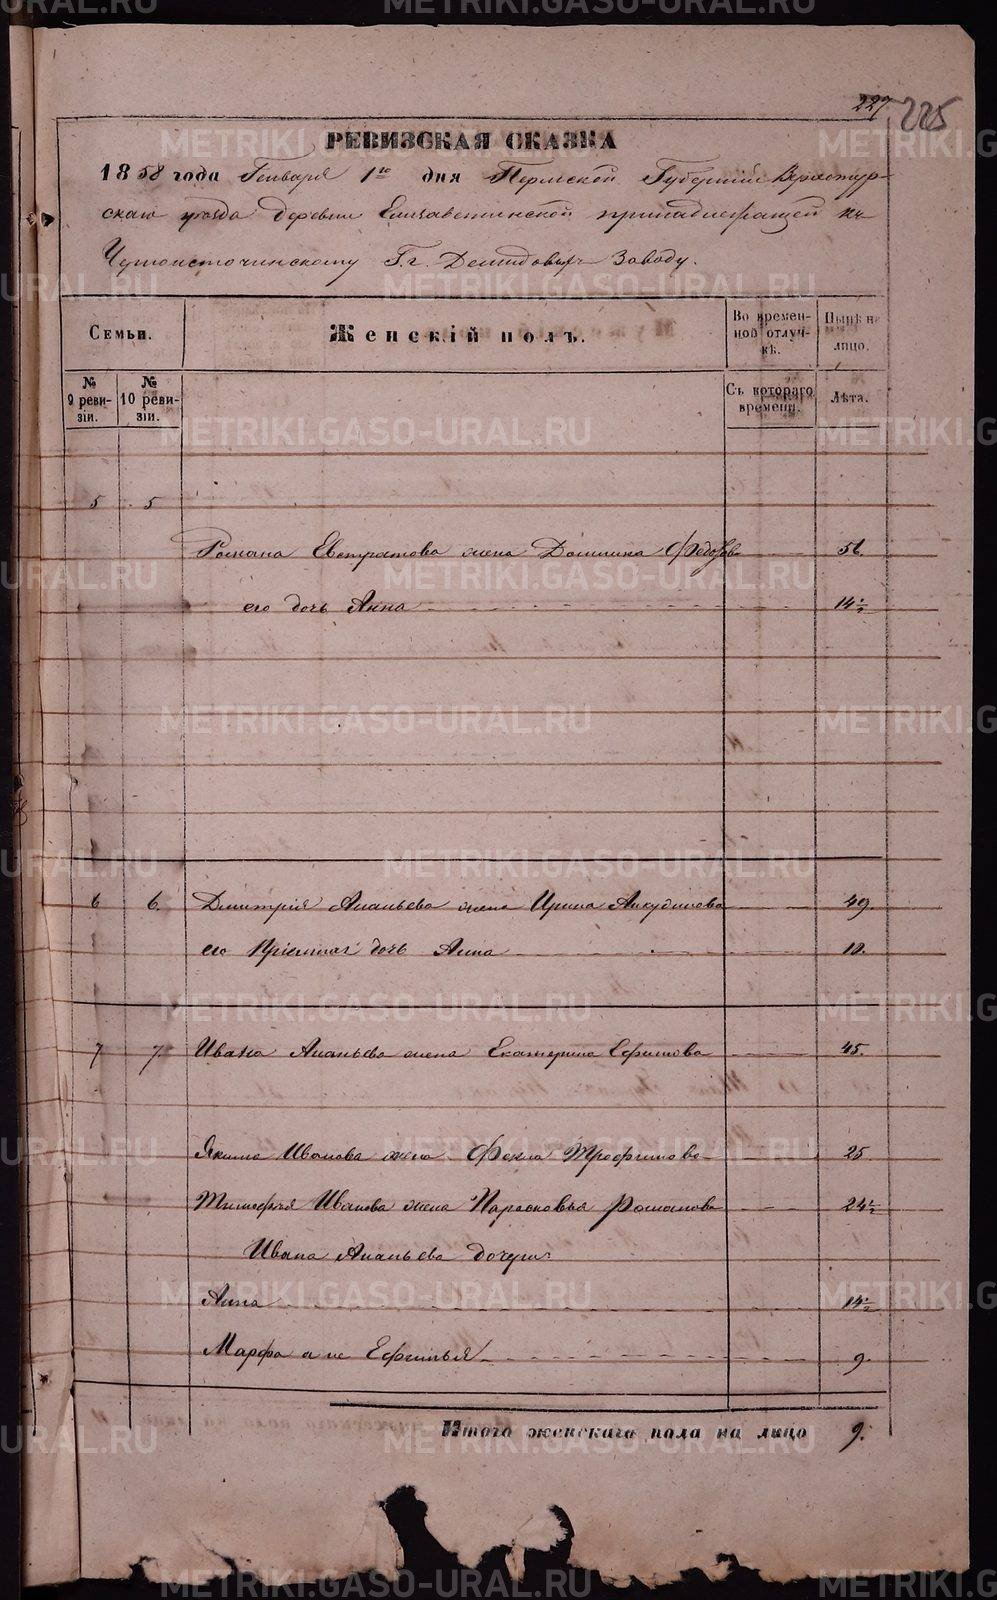 227.
225
РЕВИЗСКАЯ СКАЗКА
1858 года Генваря 1го дня Пермской Губернии Верхотур-
скаго уезда Деревни Елизаветинской принадлежащей къ
Черноисточинскому Г.г. Демидовыхъ Заводу.
Семьи.
Женскій полъ.
Во времен-
ной отлуч-
кѣ.
Нынѣ на
лицо.
№
9 реви-
зіи.
№
10 реви-
зіи.
Съ котораго
времени.
Лѣта.
5 5
Романа Евстратова жена Домника Федорова 56.
его дочь Анна 14½
6 6. Дмитрія Ананьева жена Ирина Анкудинова 49.
его Пріемная дочь Анна 10.
7 7. Ивана Ананьева жена Екатерина Ефимова 45.
Якима Иванова жена Фекла Трофимова 25
Тимофея Иванова жена Парасковья Романова 24½
Ивана Ананьева дочери:
Анна 14½
Марфа а не Ефимья 9.
Итого женскаго пола на лицо 9.
METRIKI.GASO-URAL.RU